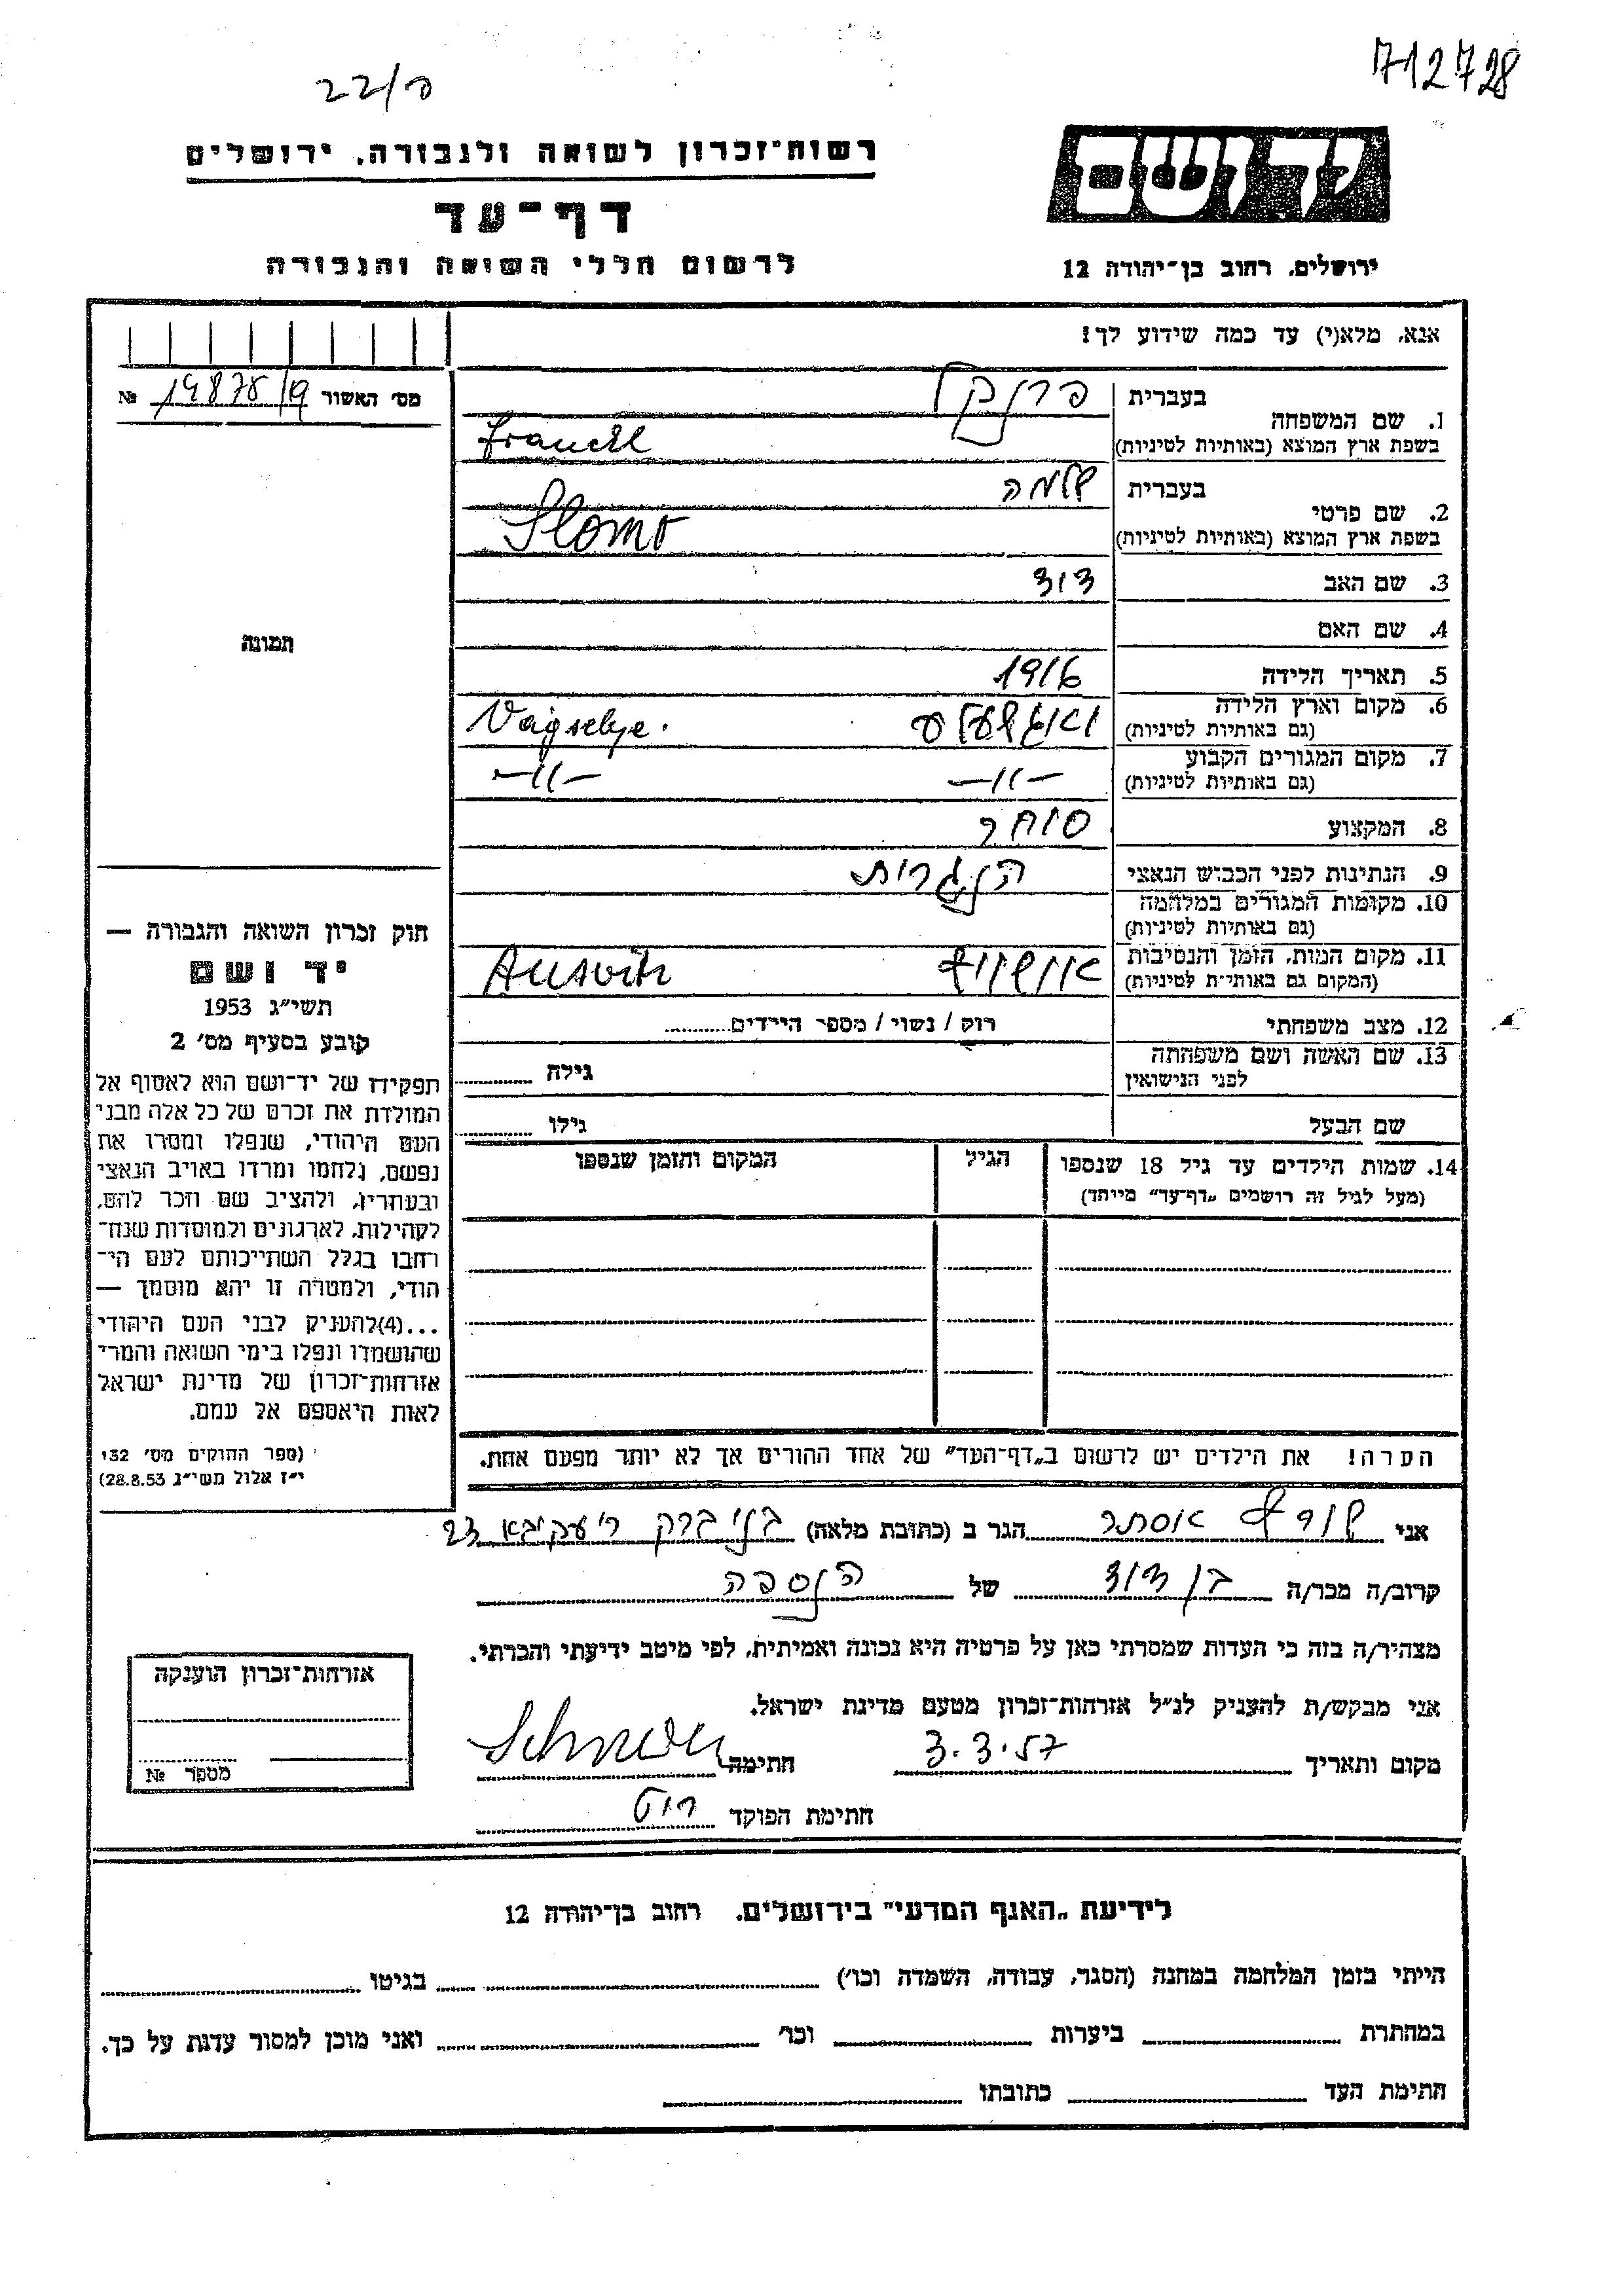 712728
22/ס
יד ושם
רשות-זכרון לשואה ולגבורה, ירושלים
דף-עד
לרשום חללי השואה והגבורה
ירושלים, רחוב בן-יהודה 12
אנא, מלא(י) עד כמה שידוע לך!
מס' האשור №
תמונה
1. שם המשפחה
בעברית פרנקל
בשפת ארץ המוצא (באותיות לטיניות) Franckl
2. שם פרטי
בעברית שלמה
בשפת ארץ המוצא (באותיות לטיניות) Slomo
3. שם האב דוד
4. שם האם
5. תאריך הלידה 1916
6. מקום וארץ הלידה
(גם באותיות לטיניות) Vágselye.
7. מקום המגורים הקבוע
(גם באותיות לטיניות) —״— —״—
8. המקצוע סוחר
9. הנתינות לפני הכבוש הנאצי הונגרית
10. מקומות המגורים במלחמה
(גם באותיות לטיניות)
11. מקום המות, הזמן והנסיבות
(המקום גם באותיות לטיניות) אושויץ Ausvitz
12. מצב משפחתי רוק / נשוי / מספר הילדים
13. שם האשה ושם משפחתה
לפני הנישואין גילה
שם הבעל גילו
14. שמות הילדים עד גיל 18 שנספו הגיל המקום והזמן שנספו
(מעל לגיל זה רושמים „דף-עד" מיוחד)
הערה! את הילדים יש לרשום ב„דף-העד" של אחד ההורים אך לא יותר מפעם אחת.
חוק זכרון השואה והגבורה —
יד ושם
תשי״ג 1953
קובע בסעיף מס' 2
תפקידו של יד-ושם הוא לאסוף אל
המולדת את זכרם של כל אלה מבני
העם היהודי, שנפלו ומסרו את
נפשם, נלחמו ומרדו באויב הנאצי
ובעוזריו, ולהציב שם וזכר להם,
לקהילות, לארגונים ולמוסדות שנח-
רחבו בגלל השתייכותם לעם הי-
הודי, ולמטרה זו יהא מוסמך —
...(4)להעניק לבני העם היהודי
שהושמדו ונפלו בימי השואה והמרי
אזרחות-זכרון של מדינת ישראל
לאות היאספם אל עמם.
(ספר החוקים מס' 132
י״ז אלול תשי״ג 28.8.53)
אני אסתר הגר ב (כתובת מלאה) בני ברק ר' עקיבא 23
קרוב/ה מכר/ה בן דוד של הנספה
מצהיר/ה בזה כי העדות שמסרתי כאן על פרטיה היא נכונה ואמיתית, לפי מיטב ידיעתי והכרתי.
אני מבקש/ת להעניק לנ״ל אזרחות-זכרון מטעם מדינת ישראל.
מקום ותאריך 3.3.57 חתימה
חתימת הפוקד
אזרחות-זכרון הוענקה
מספר №
לידיעת „האגף המדעי" בירושלים, רחוב בן-יהודה 12
הייתי בזמן המלחמה במחנה (הסגר, עבודה, השמדה וכו') בגיטו
במחתרת ביערות וכו' ואני מוכן למסור עדות על כך.
חתימת העד כתובתו